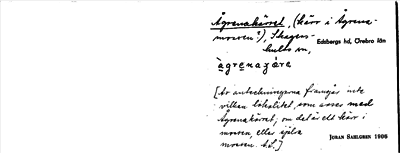 Ågrenakärret, (kärr i Ågrena-
mossen?), Skagers-
hults sn, Edsbergs hd, Örebro län
àgrenaʒárə
[Av anteckningarna framgår inte
vilken lokalitet, som avses med
Ågrenakärret, om det är ett kärr i
mossen, eller själva
mossen. S.L.]
JÖRAN SAHLGREN 1906